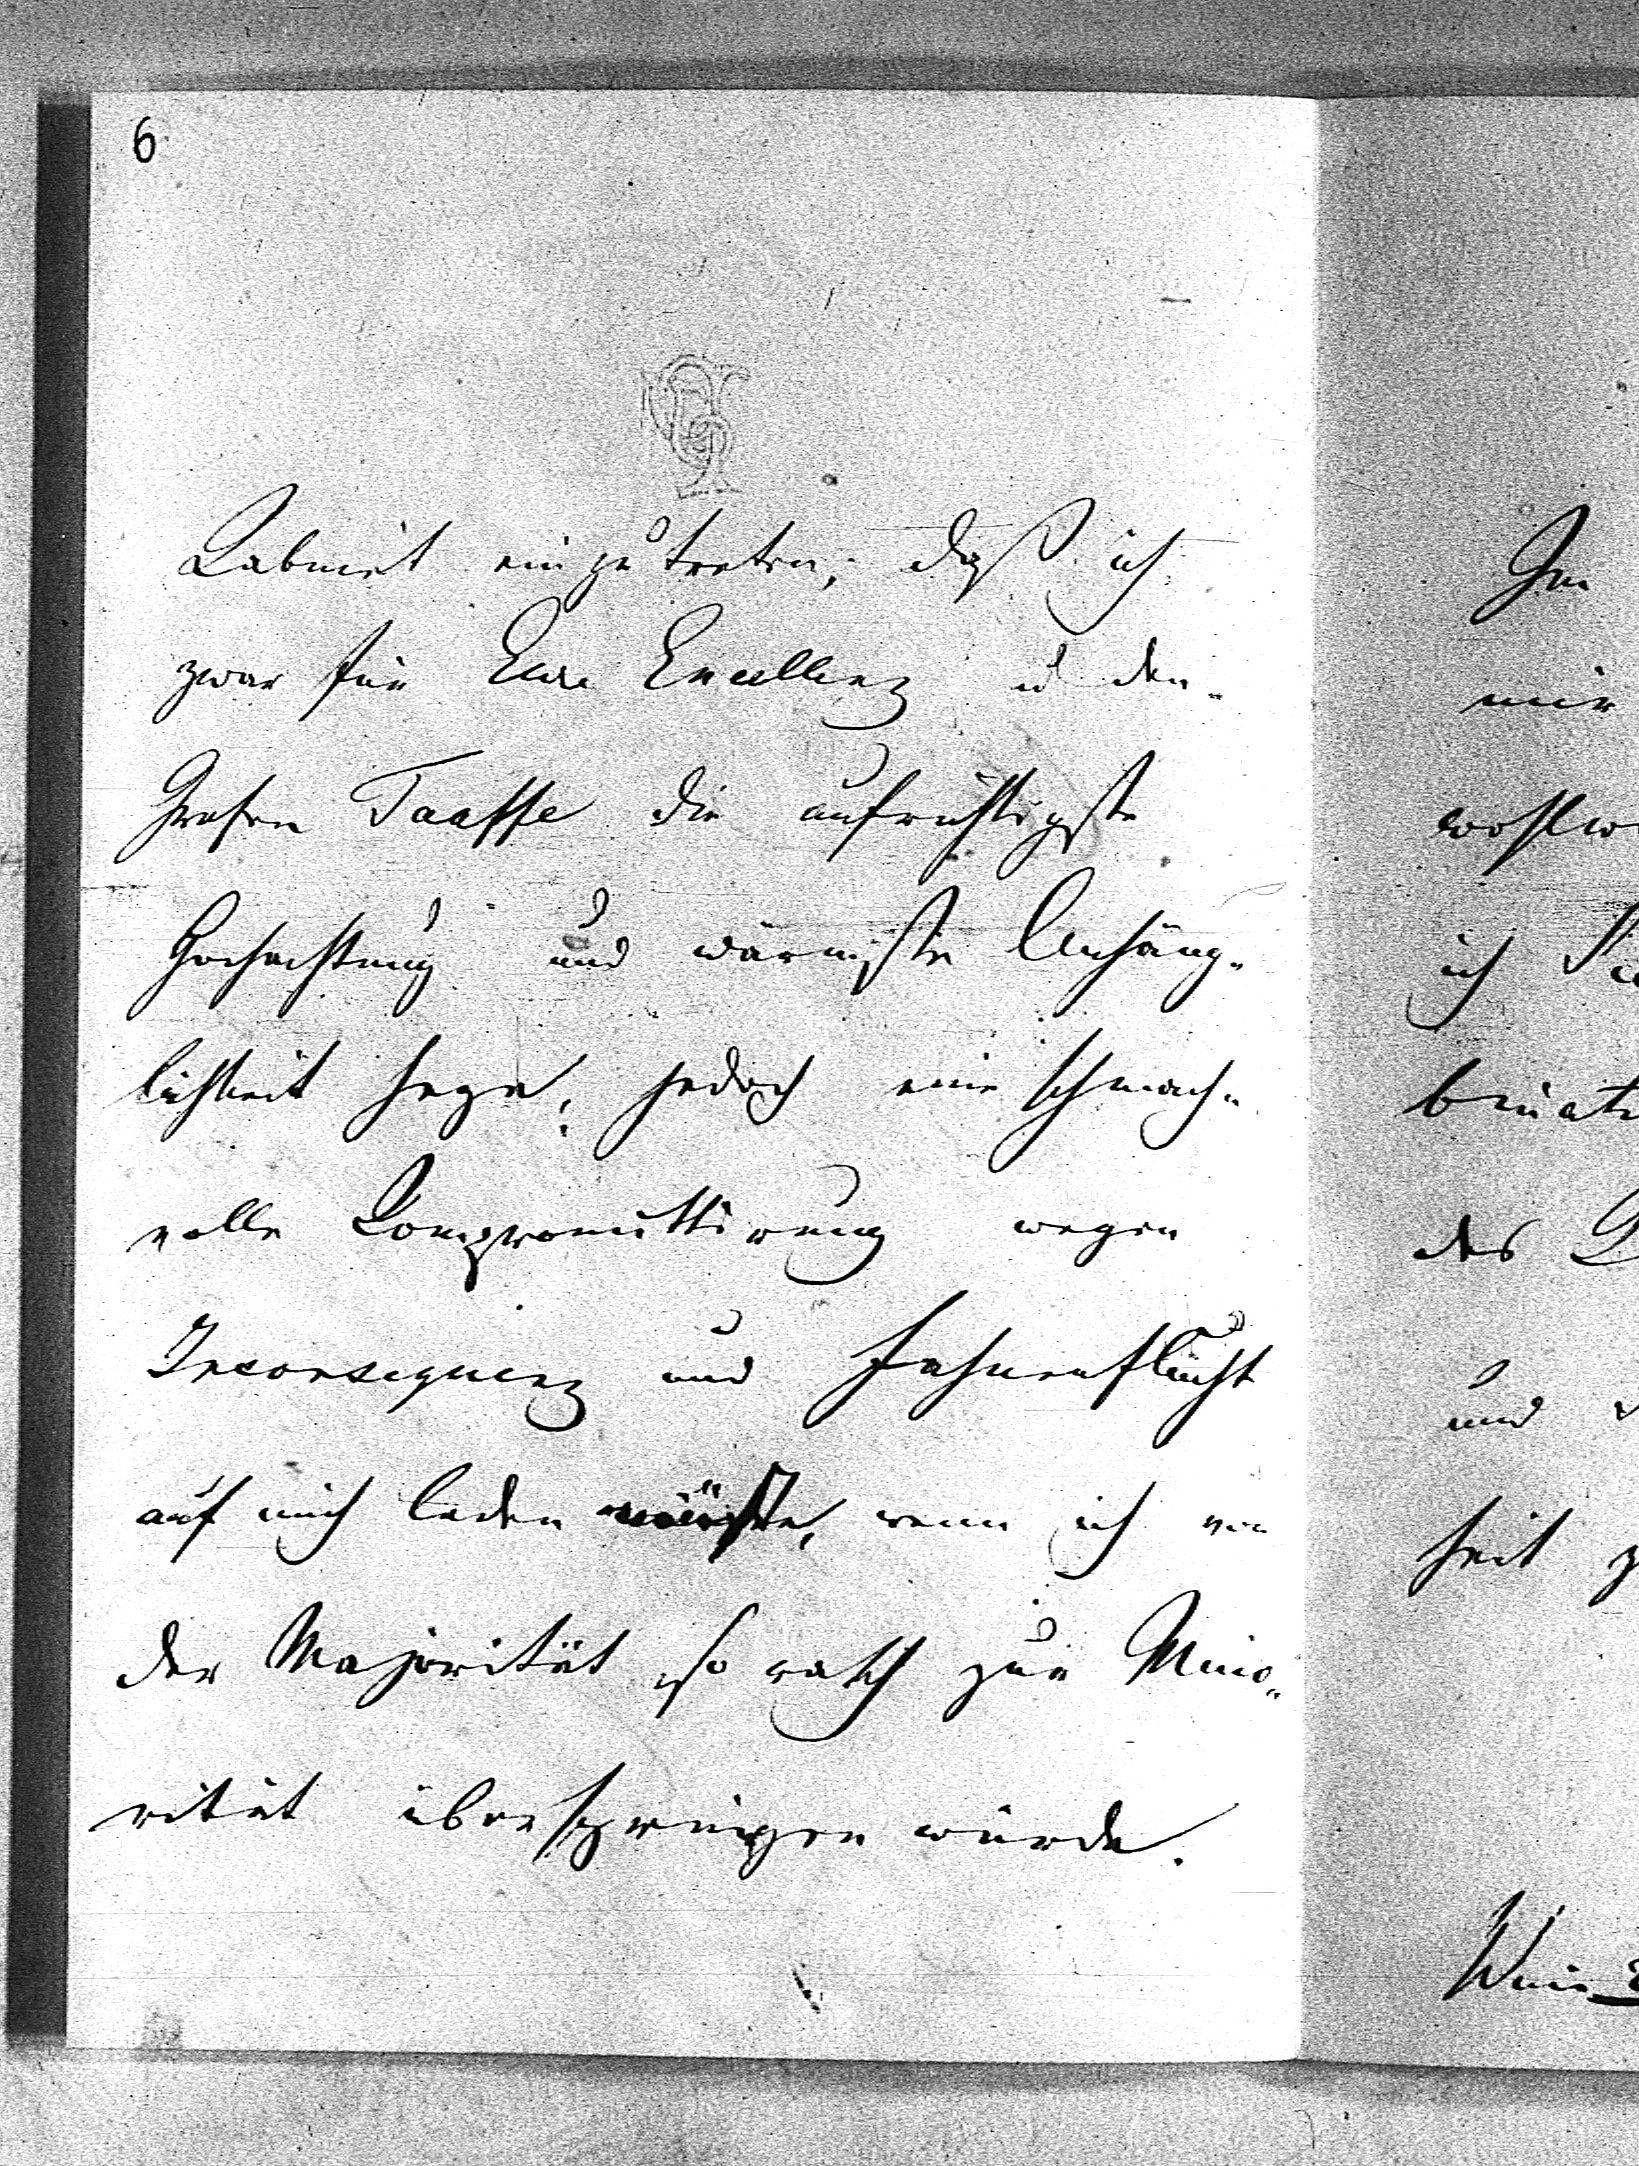 6
Cabinet einzutreten; daß ich
zwar für Eure Excellenz u den
Grafen Taaffe die aufrichtigste
Hochachtung und wärmste Anhäng-
lichkeit hege, jedoch eine schmach-
volle Compromittirung wegen
Inconsequenz und Fahnenflucht
auf mich laden müßte, wenn ich von
der Majorität so rasch zur Mino-
rität überspringen würde.
Im
mir
wohlw
ich
binati
des
und
heit z
Wien